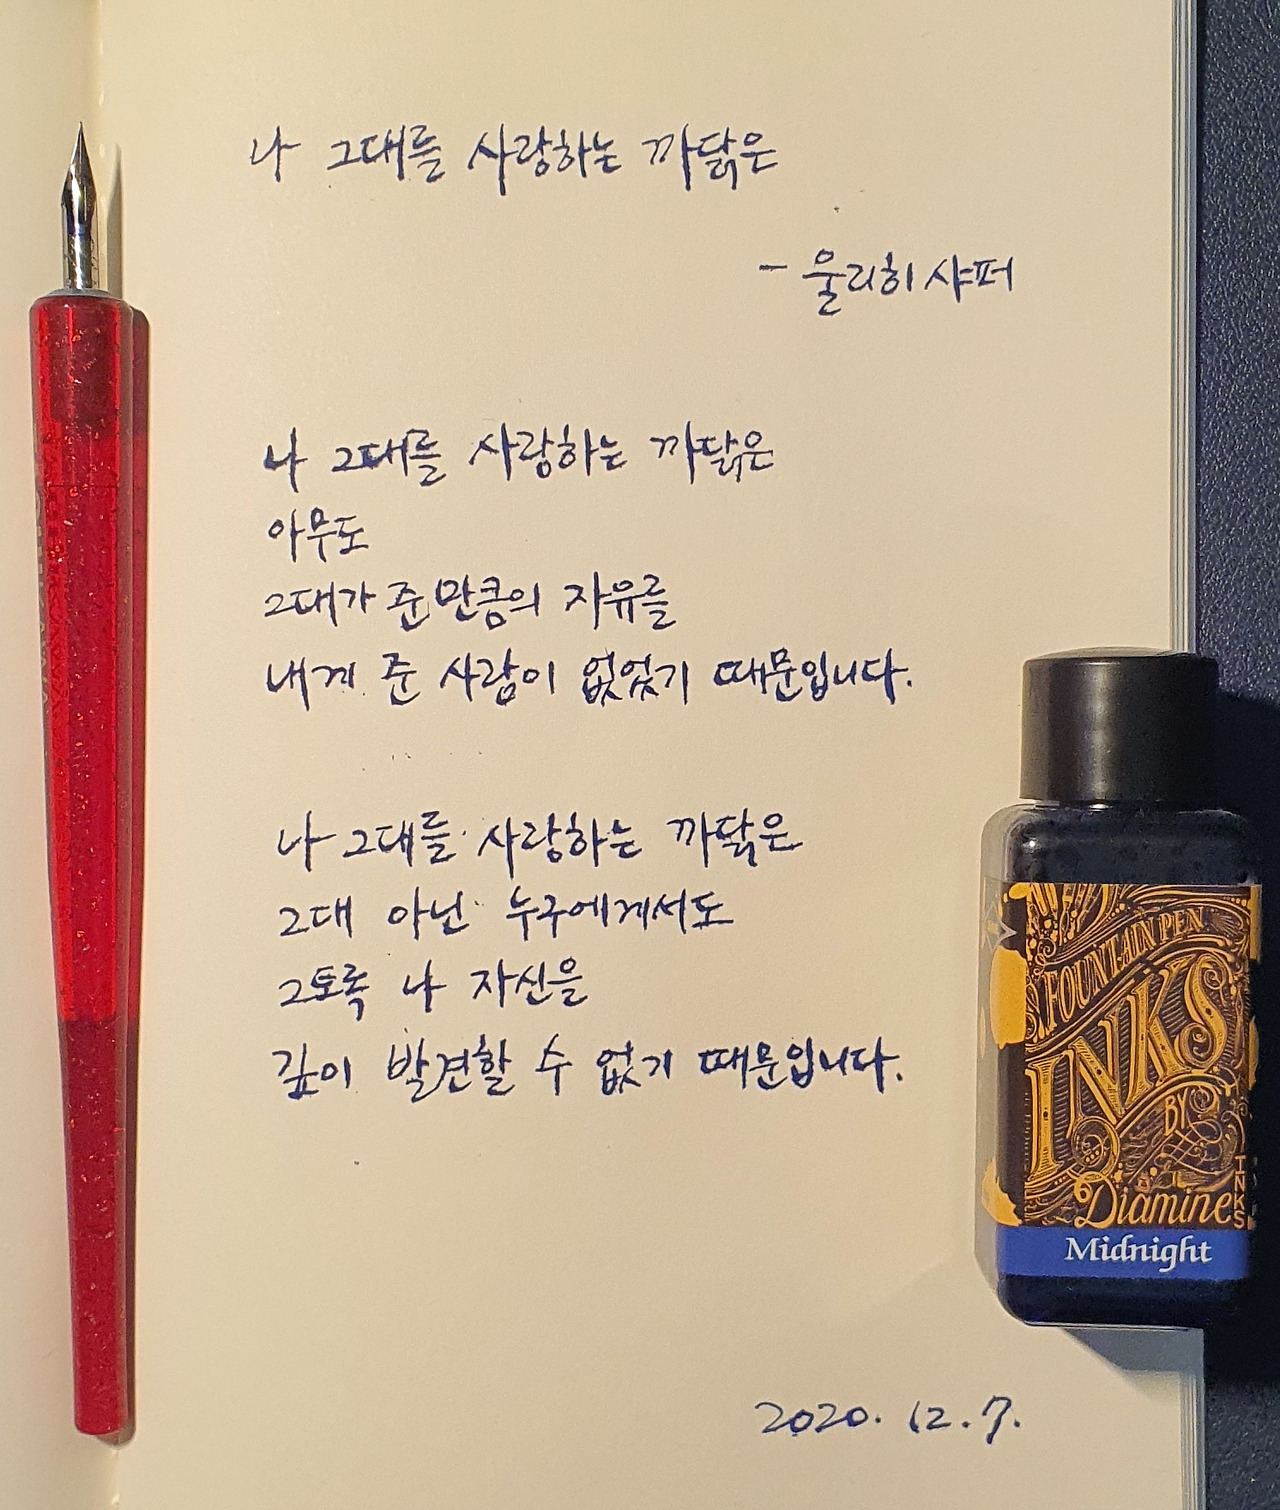 나 그대를 사랑하는 까닭은
- 울리히 샤퍼
나 그대를 사랑하는 까닭은
아무도
그대가 준 만큼의 자유를
내게 준 사람이 없었기 때문입니다.
나 그대를 사랑하는 까닭은
그대 아닌 누구에게서도
그토록 나 자신을
깊이 발견할 수 없기 때문입니다.
FOUNTAIN PEN
INKS
BY
Diamine
INKS
Midnight
2020. 12. 7.